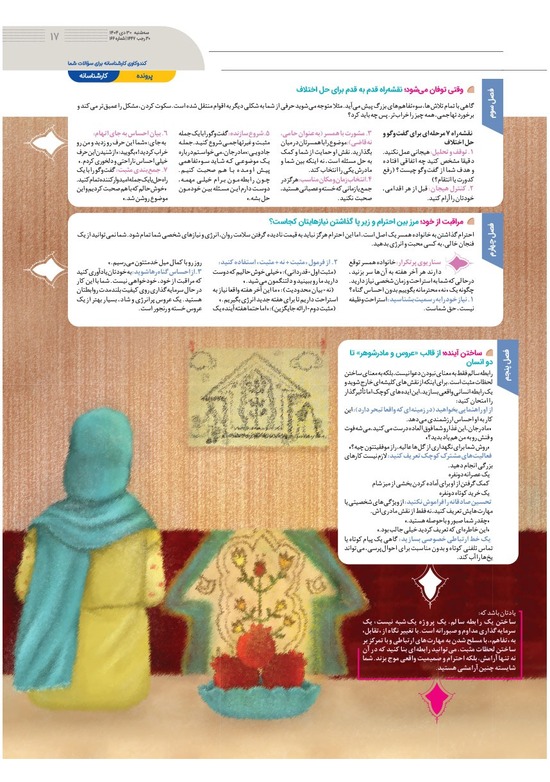 سه‌شنبه ۳۰ دی ۱۴۰۴
۳۰ رجب ۱۴۴۷ | شماره ۱۶۶
۱۷
کندوکاوی کارشناسانه برای سؤالات شما
پرونده
کارشناسانه
فصل سوم
وقتی توفان می‌شود؛ نقشه‌راه قدم به قدم برای حل اختلاف
گاهی با تمام تلاش‌ها، سوءتفاهم‌های بزرگ پیش می‌آید. مثلا متوجه می‌شوید حرفی از شما به شکلی دیگر به اقوام منتقل شده است. سکوت کردن، مشکل را عمیق‌تر می‌کند و
برخورد تهاجمی، همه چیز را خراب‌تر. پس چه باید کرد؟
نقشه‌راه ۷ مرحله‌ای برای گفت‌وگو و
حل اختلاف
۱. توقف و تحلیل: هیجانی عمل نکنید.
دقیقا مشخص کنید چه اتفاقی افتاده
و هدف شما از گفت‌وگو چیست؟ (رفع
کدورت یا انتقام؟)
۲. کنترل هیجان: قبل از هر اقدامی،
خودتان را آرام کنید.
۳. مشورت با همسر (به عنوان حامی،
نه قاضی): موضوع را با همسرتان در میان
بگذارید. نقش او حمایت از شما و کمک
به حل مسئله است، نه اینکه بین شما و
مادرش یکی را انتخاب کند.
۴. انتخاب زمان و مکان مناسب: هرگز در
جمع یا زمانی که خسته و عصبانی هستید،
صحبت نکنید.
۵. شروع سازنده: گفت‌وگو را با یک جمله
مثبت و غیرتهاجمی شروع کنید. جمله
جادویی: «مادرجان، می‌خواستم درباره
یک موضوعی که شاید سوءتفاهمی
پیش اومده با هم صحبت کنیم.
چون رابطه‌مون برام خیلی مهمه،
دوست دارم این مسئله بین خودمون
حل بشه.»
۶. بیان احساس به جای اتهام:
به جای: «شما این حرف رو زدید و من رو
خراب کردید!» بگویید: «از شنیدن این حرف
خیلی احساس ناراحتی و دلخوری کردم.»
۷. جمع‌بندی مثبت: گفت‌وگو را با یک
راه‌حل یا یک جمله امیدوارکننده تمام کنید.
«خوش‌حالم که با هم صحبت کردیم و این
موضوع روشن شد.»
فصل چهارم
مراقبت از خود؛ مرز بین احترام و زیر پا گذاشتن نیازهایتان کجاست؟
احترام گذاشتن به خانواده همسر یک اصل است، اما این احترام هرگز نباید به قیمت نادیده گرفتن سلامت روان، انرژی و نیازهای شخصی شما تمام شود. شما نمی‌توانید از یک
فنجان خالی، به کسی محبت و انرژی بدهید.
سناریوی پرتکرار: خانواده همسر توقع
دارند هر آخر هفته به آن‌ها سر بزنید،
در حالی که شما به استراحت و زمان شخصی نیاز دارید.
چگونه یک «نه» محترمانه بگوییم بدون احساس گناه؟
۱. نیاز خود را به رسمیت بشناسید: استراحت وظیفه
نیست، حق شماست.
۲. از فرمول «مثبت + نه + مثبت» استفاده کنید:
(مثبت اول-قدردانی): «خیلی خوش‌حالیم که دوست
دارید ما رو ببینید و دلتنگمون می‌شید.»
(نه-بیان محدودیت): «ما این آخر هفته واقعا نیاز به
استراحت داریم تا برای هفته جدید انرژی بگیریم.»
(مثبت دوم-ارائه جایگزین): «اما حتما هفته آینده یک
روز رو با کمال میل خدمتتون می‌رسیم.»
۳. از احساس گناه رها شوید: به خودتان یادآوری کنید
که مراقبت از خود، خودخواهی نیست. شما با این کار
در حال سرمایه‌گذاری روی کیفیت بلندمدت روابطتان
هستید. یک عروس پرانرژی و شاد، بسیار بهتر از یک
عروس خسته و رنجور است.
فصل پنجم
ساختن آینده؛ از قالب «عروس و مادرشوهر» تا
دو انسان
رابطه سالم فقط به معنای نبودن دعوا نیست، بلکه به معنای ساختن
لحظات مثبت است. برای اینکه از نقش‌های کلیشه‌ای خارج شوید و
یک رابطه انسانی واقعی بسازید، این ایده‌های کوچک اما تأثیرگذار
را امتحان کنید:
از او راهنمایی بخواهید (در زمینه‌ای که واقعا تبحر دارد): این
کار به او احساس ارزشمندی می‌دهد.
مادرجان، این غذا رو شما فوق‌العاده درست می‌کنید. می‌شه فوت
و فنش رو به من هم یاد بدید؟»
«روش شما برای نگهداری از گل‌ها عالیه. راز موفقیتتون چیه؟»
فعالیت‌های مشترک کوچک تعریف کنید: لازم نیست کارهای
بزرگی انجام دهید.
یک عصرانه دونفره
کمک گرفتن از او برای آماده کردن بخشی از میز شام
یک خرید کوتاه دونفره
تحسین صادقانه را فراموش نکنید: از ویژگی‌های شخصیتی یا
مهارت‌هایش تعریف کنید، نه فقط از نقش مادری‌اش.
«چقدر شما صبور و باحوصله هستید.»
«این خاطره‌ای که تعریف کردید خیلی جالب بود.»
یک خط ارتباطی خصوصی بسازید: گاهی یک پیام کوتاه یا
تماس تلفنی کوتاه و بدون مناسبت برای احوال‌پرسی، می‌تواند
یخ‌ها را آب کند.
یادتان باشد که:
ساختن یک رابطه سالم، یک پروژه یک‌شبه نیست؛ یک
سرمایه‌گذاری مداوم و صبورانه است. با تغییر نگاه از «تقابل»
به «تفاهم»، با مسلح شدن به مهارت‌های ارتباطی و با تمرکز بر
ساختن لحظات مثبت، می‌توانید رابطه‌ای بنا کنید که در آن
نه تنها آرامش، بلکه احترام و صمیمیت واقعی موج بزند. شما
شایسته چنین آرامشی هستید.